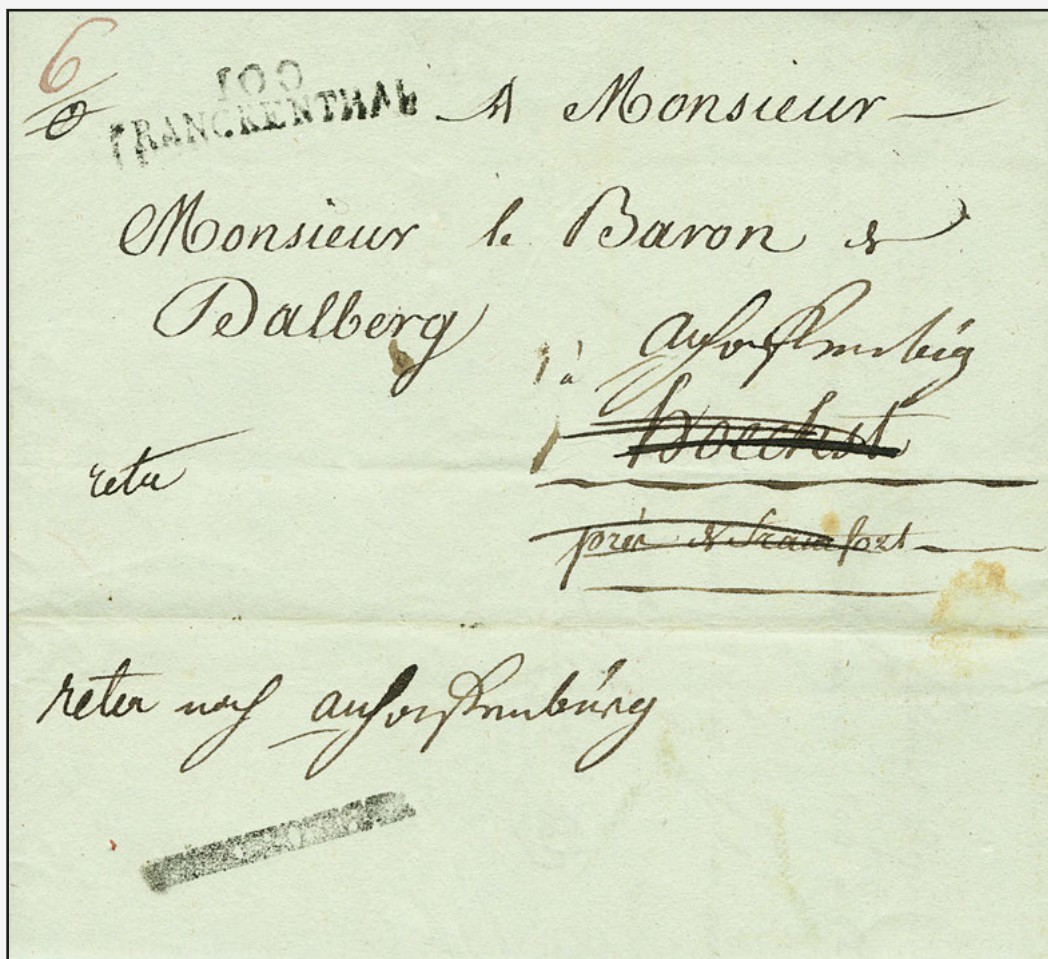 6
100
FRANCKENTHAL
A Monsieur
Monsieur le Baron de
Dalberg
à
Aschaffenburg
Hoechst
près de francfort
retu
retu nach Aschaffenburg